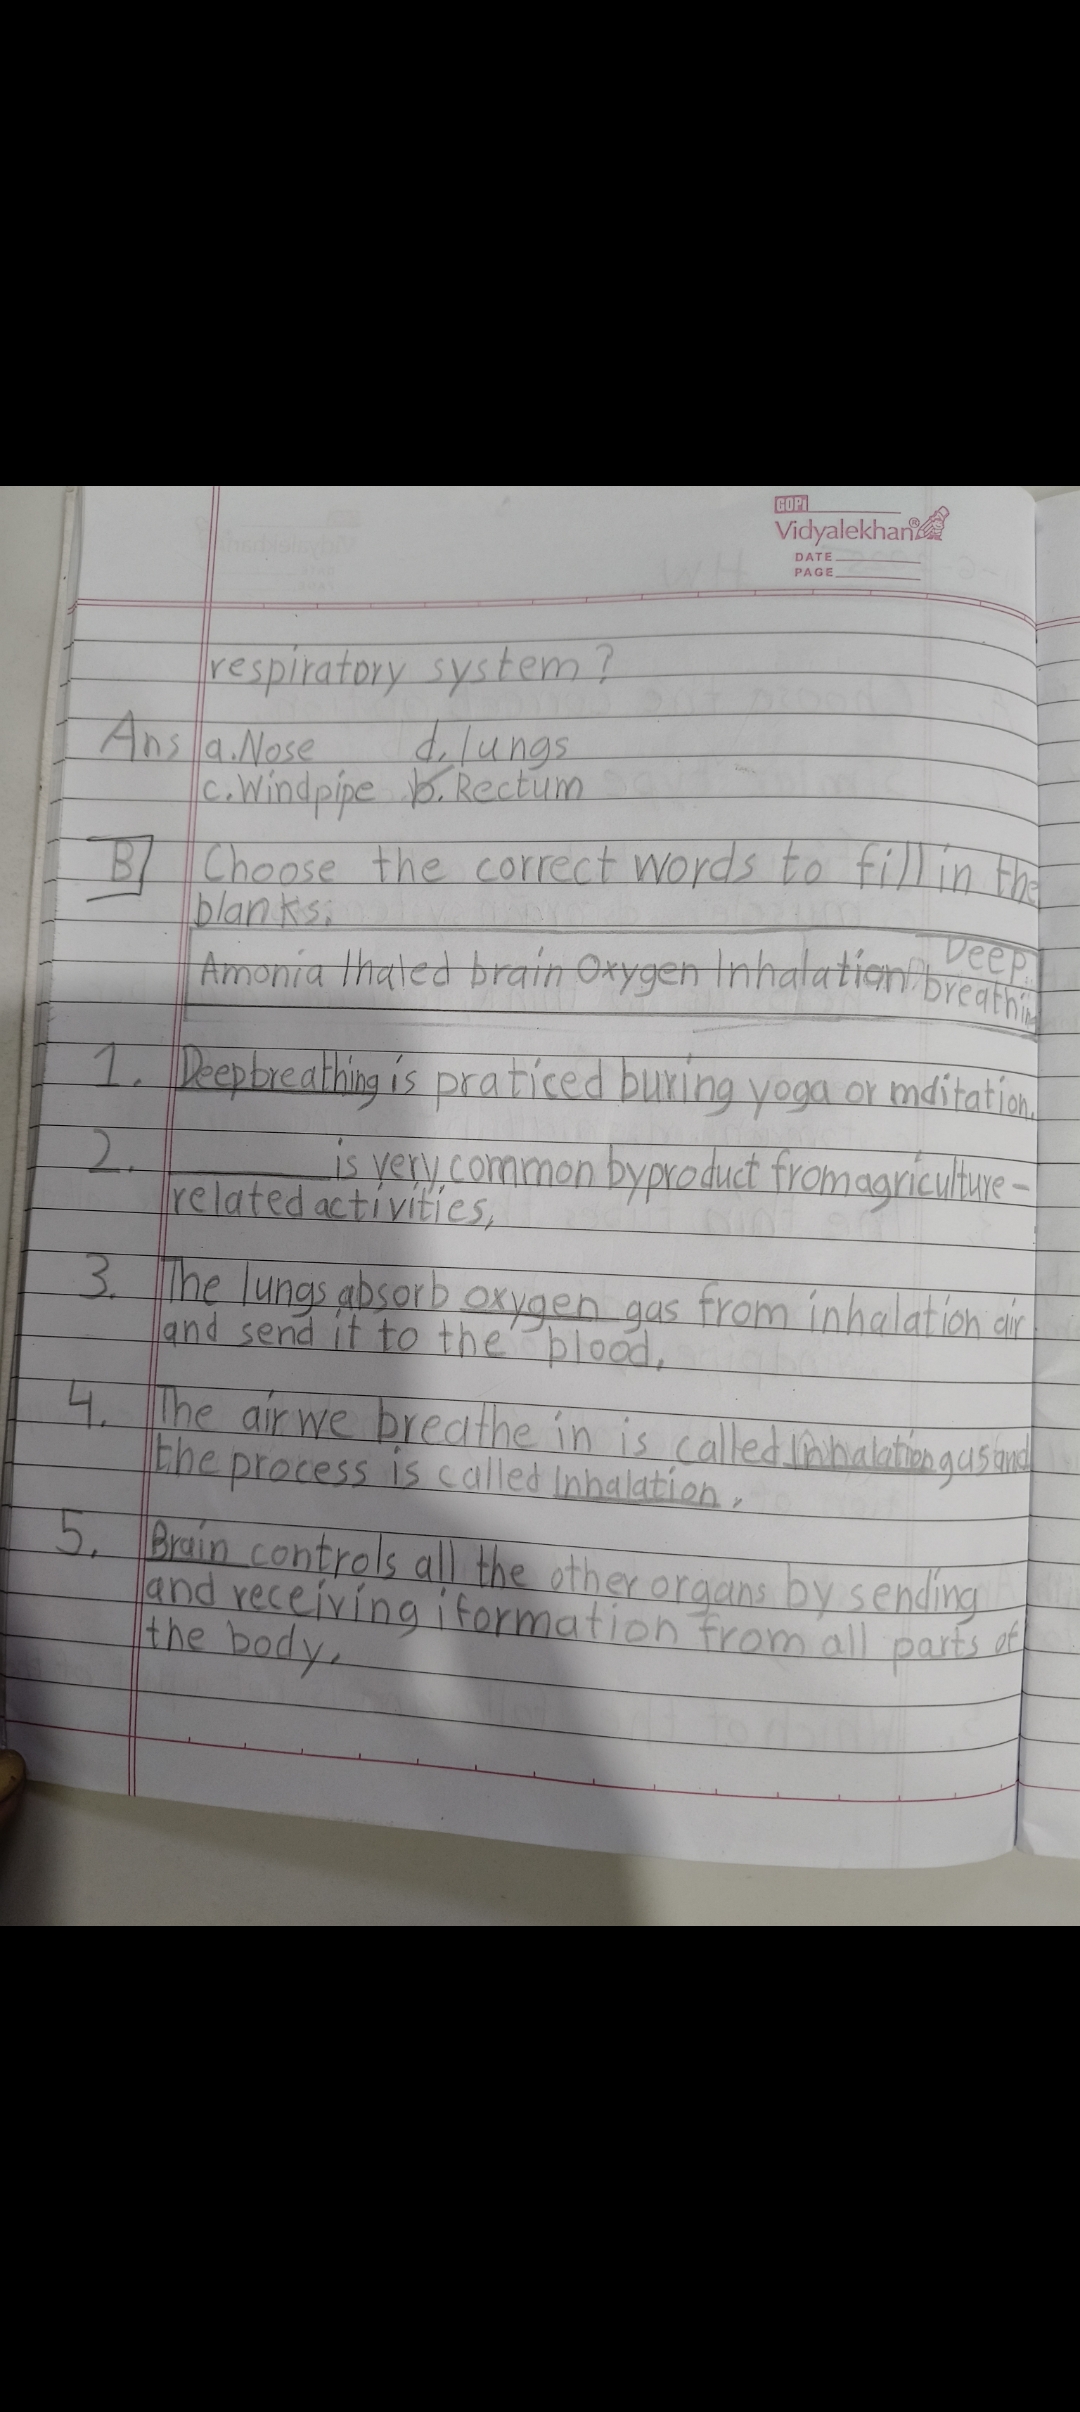 GOPI
Vidyalekhan®
DATE
PAGE
respiratory system?
Ans a. Nose d. lungs
c. Windpipe b. Rectum
B Choose the correct words to fill in the
blanks.
Amonia Ihaled brain Oxygen Inhalation Deep
breathin
1. Deep breathing is praticed buring yoga or mditation.
2. ______ is very common byproduct from agriculture-
related activities,
3. The lungs absorb oxygen gas from inhalation air
and send it to the blood.
4. The air we breathe in is called Inhalation gas and
the process is called Inhalation.
5. Brain controls all the other organs by sending
and receiving iformation from all parts of
the body.